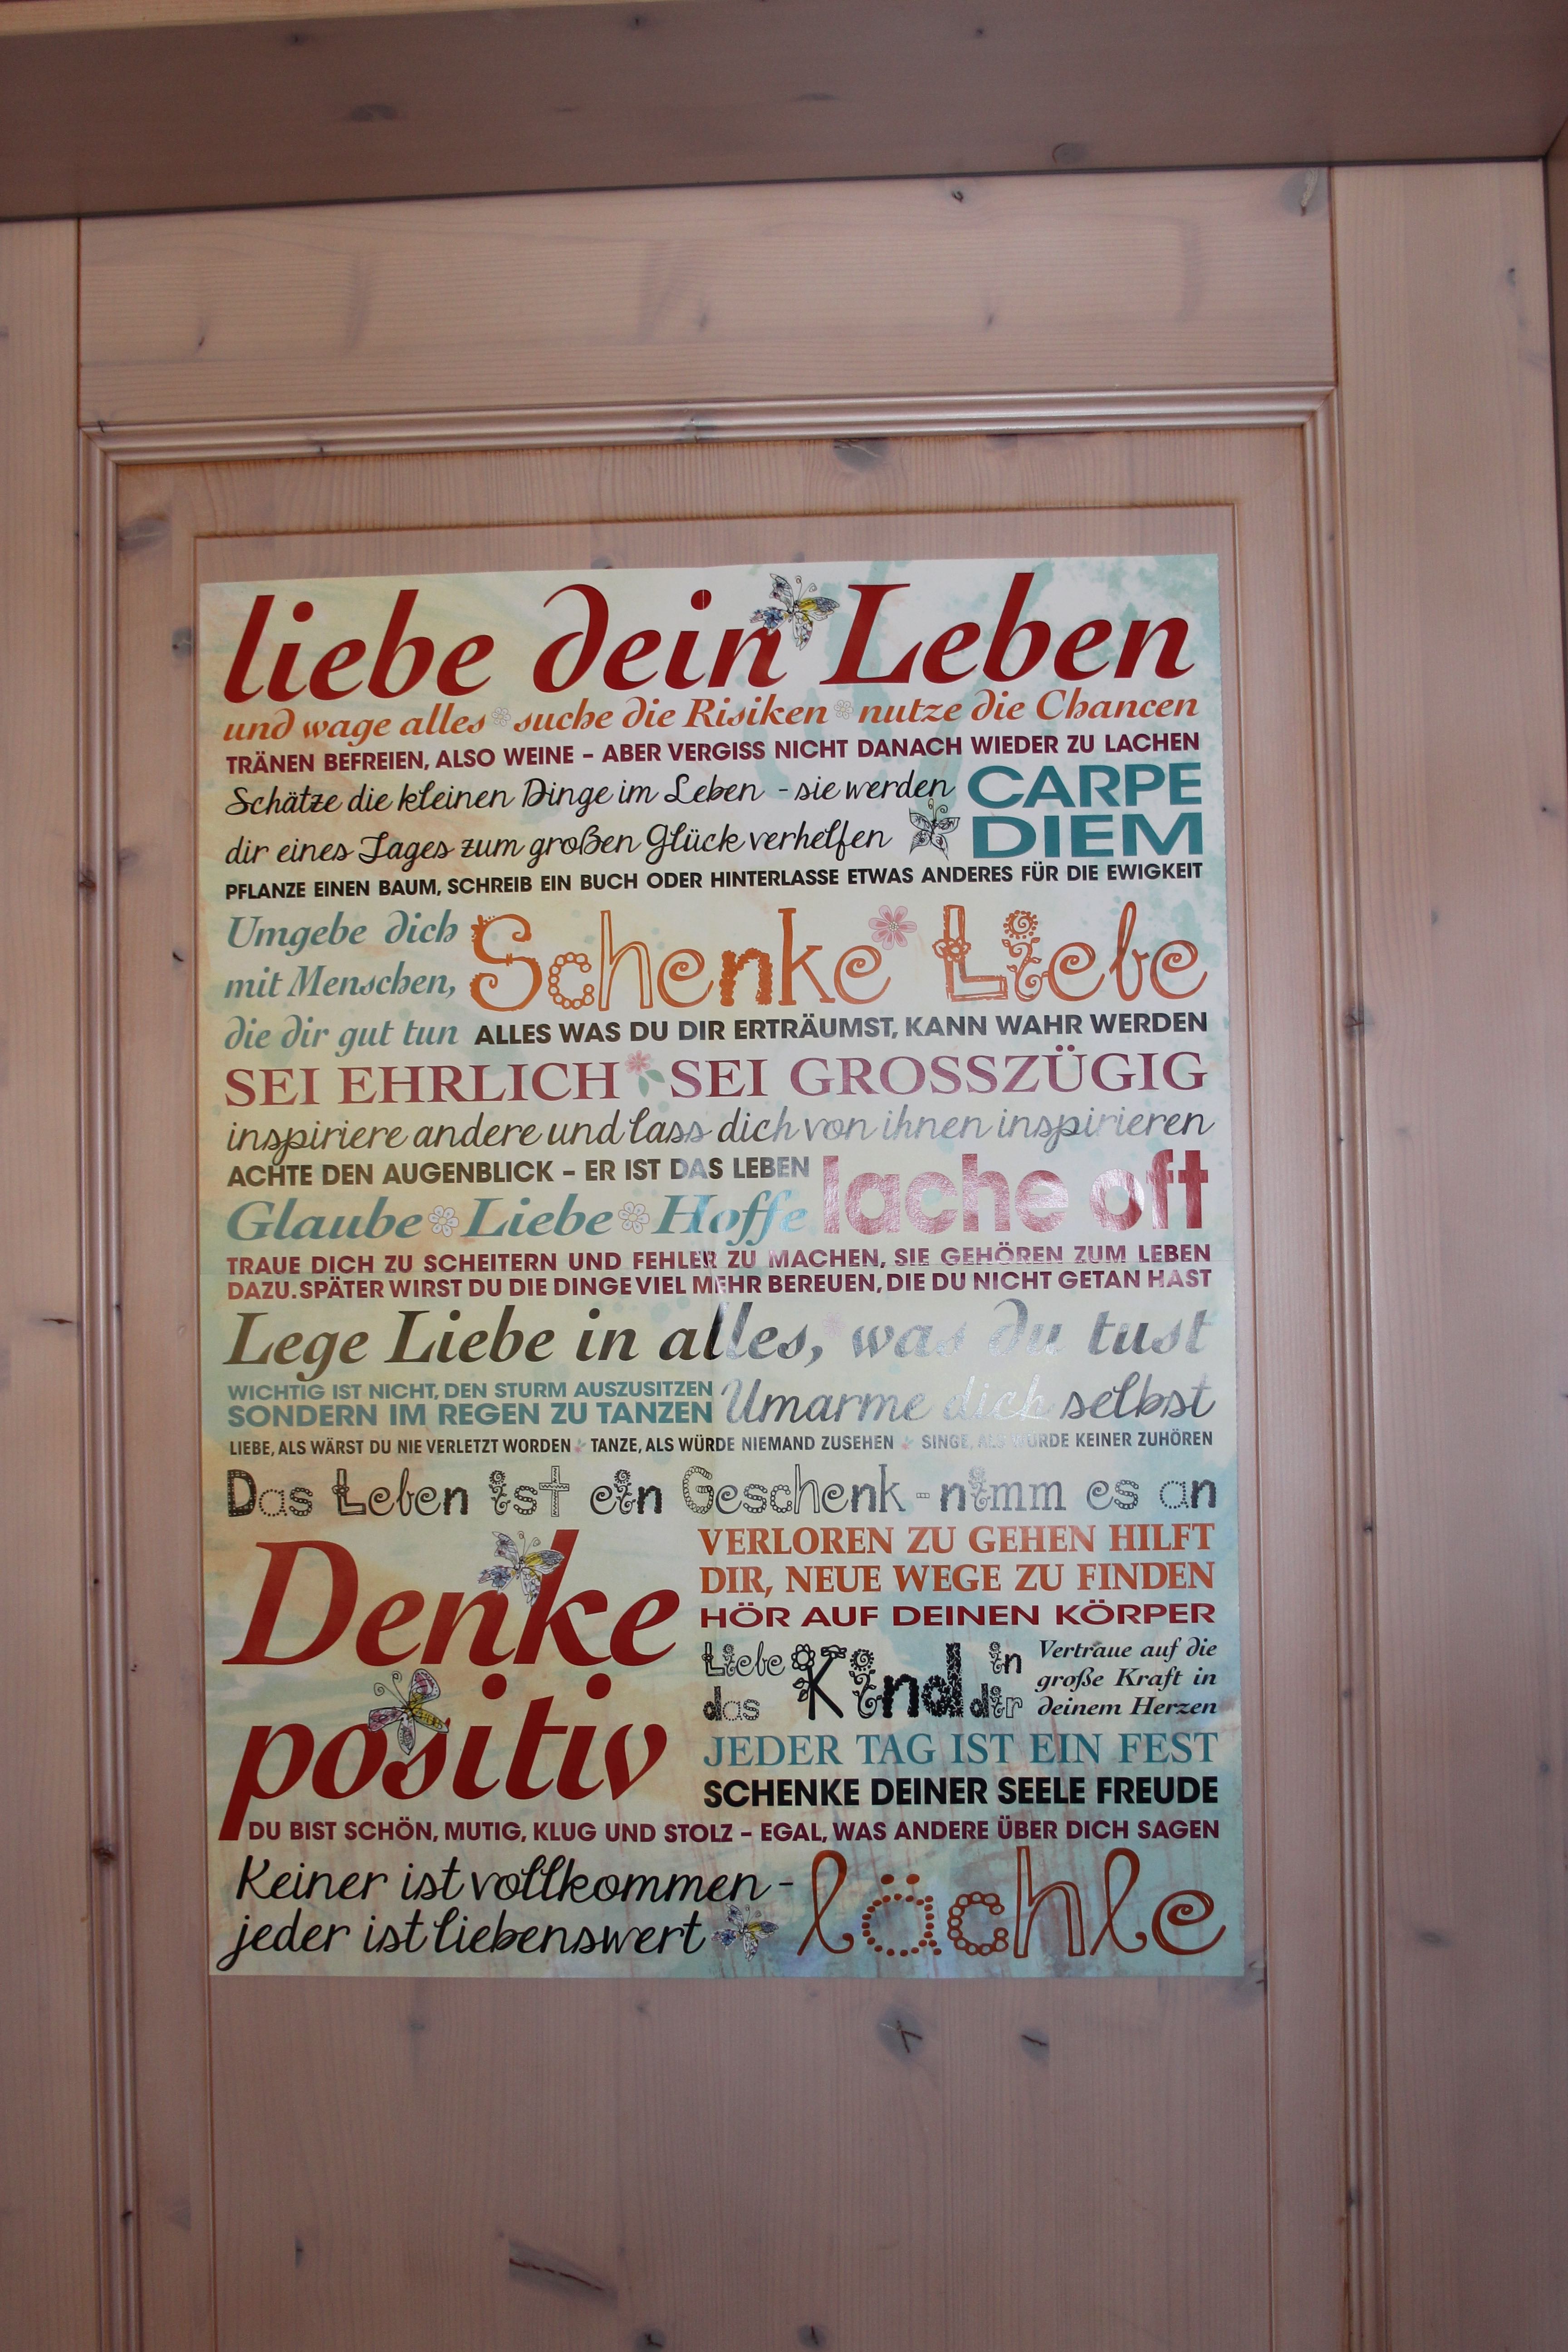 liebe dein Leben
und wage alles suche die Risiken nutze die Chancen
TRÄNEN BEFREIEN, ALSO WEINE – ABER VERGISS NICHT DANACH WIEDER ZU LACHEN
Schätze die kleinen Dinge im Leben - sie werden
dir eines Tages zum großen Glück verhelfen
CARPE
DIEM
PFLANZE EINEN BAUM, SCHREIB EIN BUCH ODER HINTERLASSE ETWAS ANDERES FÜR DIE EWIGKEIT
Umgebe dich
mit Menschen,
die dir gut tun
Schenke Liebe
ALLES WAS DU DIR ERTRÄUMST, KANN WAHR WERDEN
SEI EHRLICH SEI GROSSZÜGIG
inspiriere andere und lass dich von ihnen inspirieren
ACHTE DEN AUGENBLICK – ER IST DAS LEBEN
lache oft
Glaube Liebe Hoffe
TRAUE DICH ZU SCHEITERN UND FEHLER ZU MACHEN, SIE GEHÖREN ZUM LEBEN
DAZU. SPÄTER WIRST DU DIE DINGE VIEL MEHR BEREUEN, DIE DU NICHT GETAN HAST
Lege Liebe in alles, was du tust
WICHTIG IST NICHT, DEN STURM AUSZUSITZEN
SONDERN IM REGEN ZU TANZEN
Umarme dich selbst
LIEBE, ALS WÄRST DU NIE VERLETZT WORDEN TANZE, ALS WÜRDE NIEMAND ZUSEHEN SINGE, ALS WÜRDE KEINER ZUHÖREN
Das Leben ist ein Geschenk - nimm es an
Denke
positiv
VERLOREN ZU GEHEN HILFT
DIR, NEUE WEGE ZU FINDEN
HÖR AUF DEINEN KÖRPER
Liebe
das
Kind
in
dir
Vertraue auf die
große Kraft in
deinem Herzen
JEDER TAG IST EIN FEST
SCHENKE DEINER SEELE FREUDE
DU BIST SCHÖN, MUTIG, KLUG UND STOLZ – EGAL, WAS ANDERE ÜBER DICH SAGEN
Keiner ist vollkommen -
jeder ist liebenswert
lächle